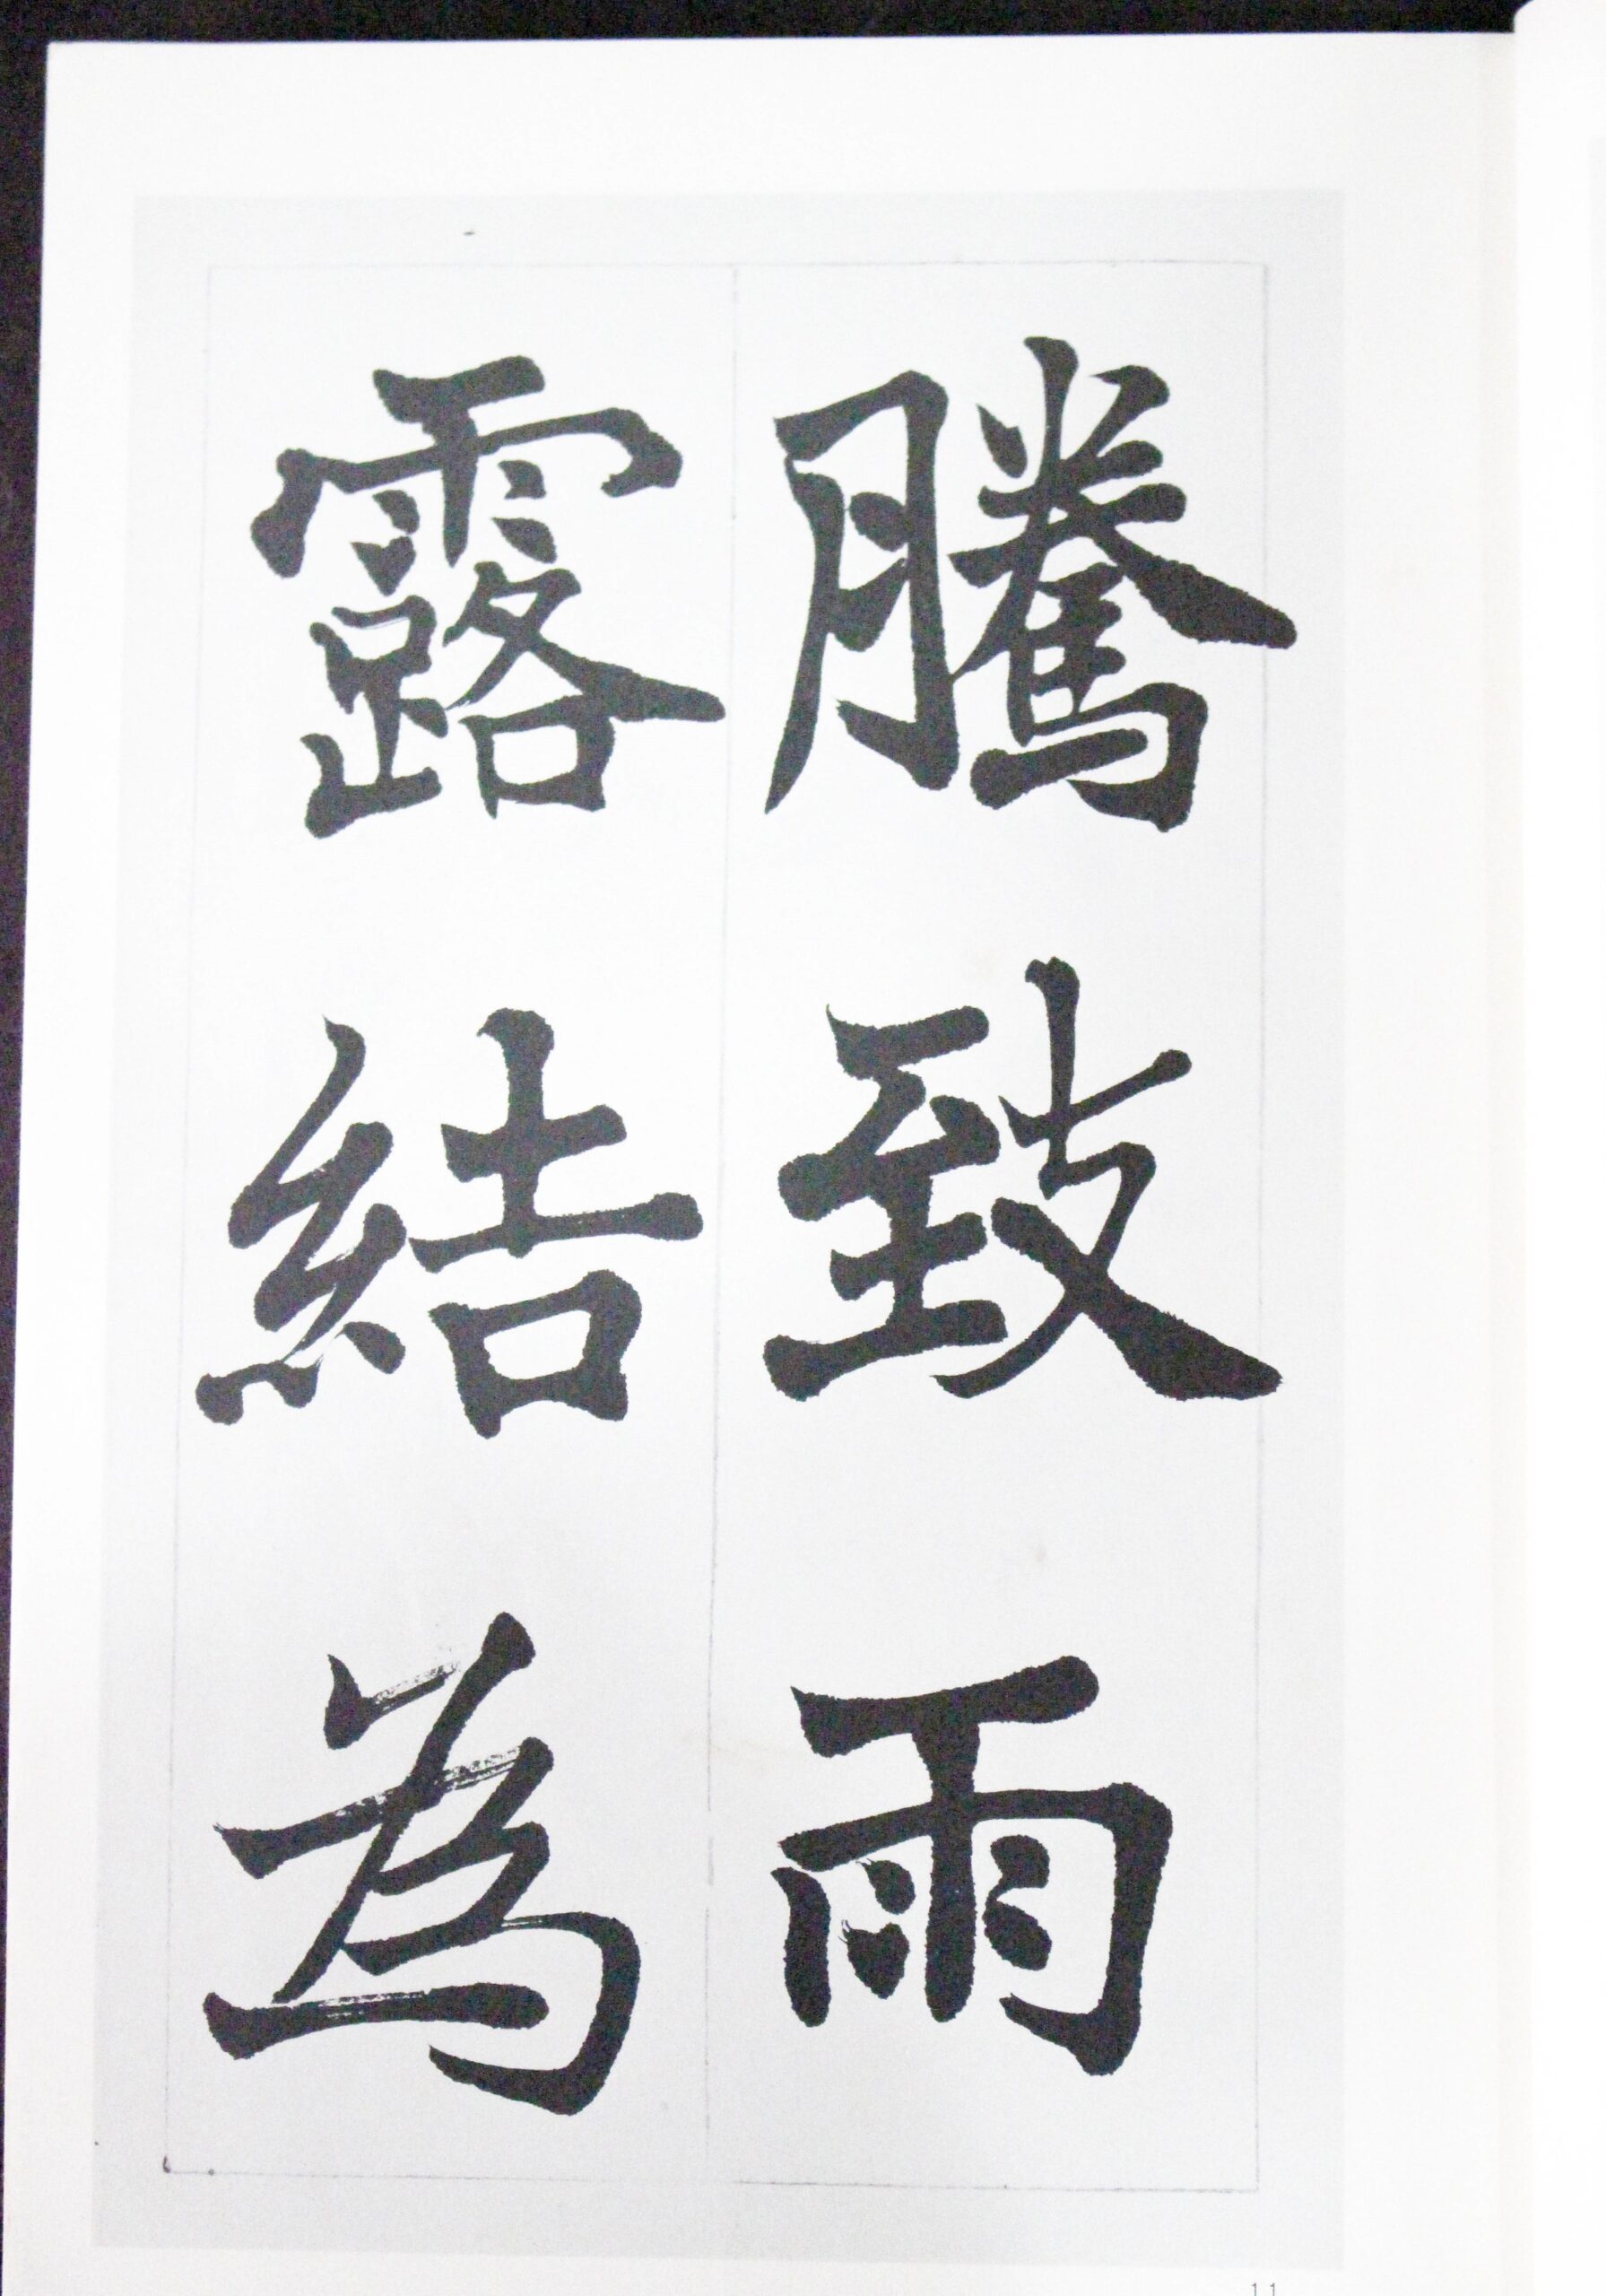 騰致雨
露結為
11